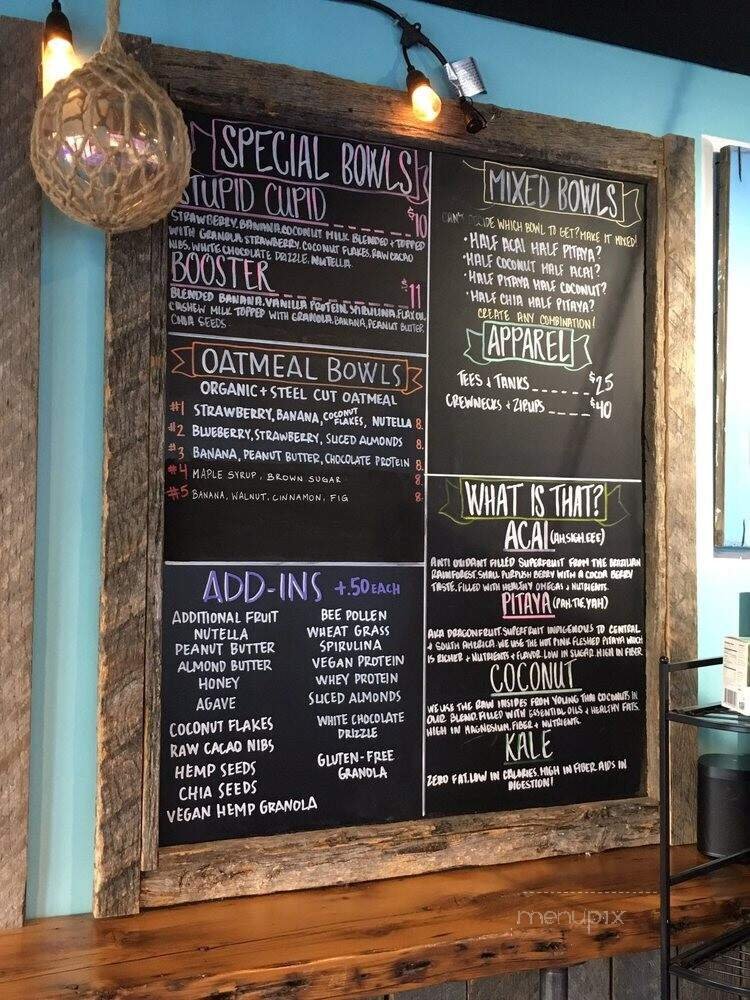 SPECIAL BOWLS
STUPID CUPID $10
STRAWBERRY, BANANA, COCONUT MILK BLENDED + TOPPED
WITH GRANOLA, STRAWBERRY, COCONUT FLAKES, RAW CACAO
NIBS, WHITE CHOCOLATE DRIZZLE, NUTELLA
BOOSTER $11
BLENDED BANANA, VANILLA PROTEIN, SPIRULINA, FLAX OIL
CASHEW MILK TOPPED WITH GRANOLA, BANANA, PEANUT BUTTER
CHIA SEEDS
OATMEAL BOWLS
ORGANIC + STEEL CUT OATMEAL
#1 STRAWBERRY, BANANA, COCONUT FLAKES, NUTELLA 8.
#2 BLUEBERRY, STRAWBERRY, SLICED ALMONDS 8.
#3 BANANA, PEANUT BUTTER, CHOCOLATE PROTEIN 8.
#4 MAPLE SYRUP, BROWN SUGAR 8.
#5 BANANA, WALNUT, CINNAMON, FIG 8.
ADD-INS +.50 EACH
ADDITIONAL FRUIT
NUTELLA
PEANUT BUTTER
ALMOND BUTTER
HONEY
AGAVE
COCONUT FLAKES
RAW CACAO NIBS
HEMP SEEDS
CHIA SEEDS
VEGAN HEMP GRANOLA
BEE POLLEN
WHEAT GRASS
SPIRULINA
VEGAN PROTEIN
WHEY PROTEIN
SLICED ALMONDS
WHITE CHOCOLATE
DRIZZLE
GLUTEN-FREE
GRANOLA
MIXED BOWLS
CAN'T DECIDE WHICH BOWL TO GET? MAKE IT MIXED!
• HALF ACAI HALF PITAYA?
• HALF COCONUT HALF ACAI?
• HALF PITAYA HALF COCONUT?
• HALF CHIA HALF PITAYA?
CREATE ANY COMBINATION!
APPAREL
TEES + TANKS $25
CREWNECKS + ZIPUPS $40
WHAT IS THAT?
ACAI (AH.SIGH.EEE)
ANTI OXIDANT FILLED SUPERFRUIT FROM THE BRAZILIAN
RAINFOREST. SMALL PURPLISH BERRY WITH A COCOA BERRY
TASTE. FILLED WITH HEALTHY OMEGAS + NUTRIENTS.
PITAYA (PAH.TIE.YAH)
AKA DRAGONFRUIT. SUPERFRUIT INDIGENOUS TO CENTRAL
+ SOUTH AMERICA. WE USE THE HOT PINK FLESHED PITAYA WHICH
IS RICHER + NUTRIENTS + FLAVOR. LOW IN SUGAR. HIGH IN FIBER
COCONUT
WE USE THE RAW INSIDES FROM YOUNG THAI COCONUTS IN
OUR BLEND. FILLED WITH ESSENTIAL OILS + HEALTHY FATS.
HIGH IN MAGNESIUM, FIBER + NUTRIENTS.
KALE
ZERO FAT. LOW IN CALORIES. HIGH IN FIBER. AIDS IN
DIGESTION!
menupix